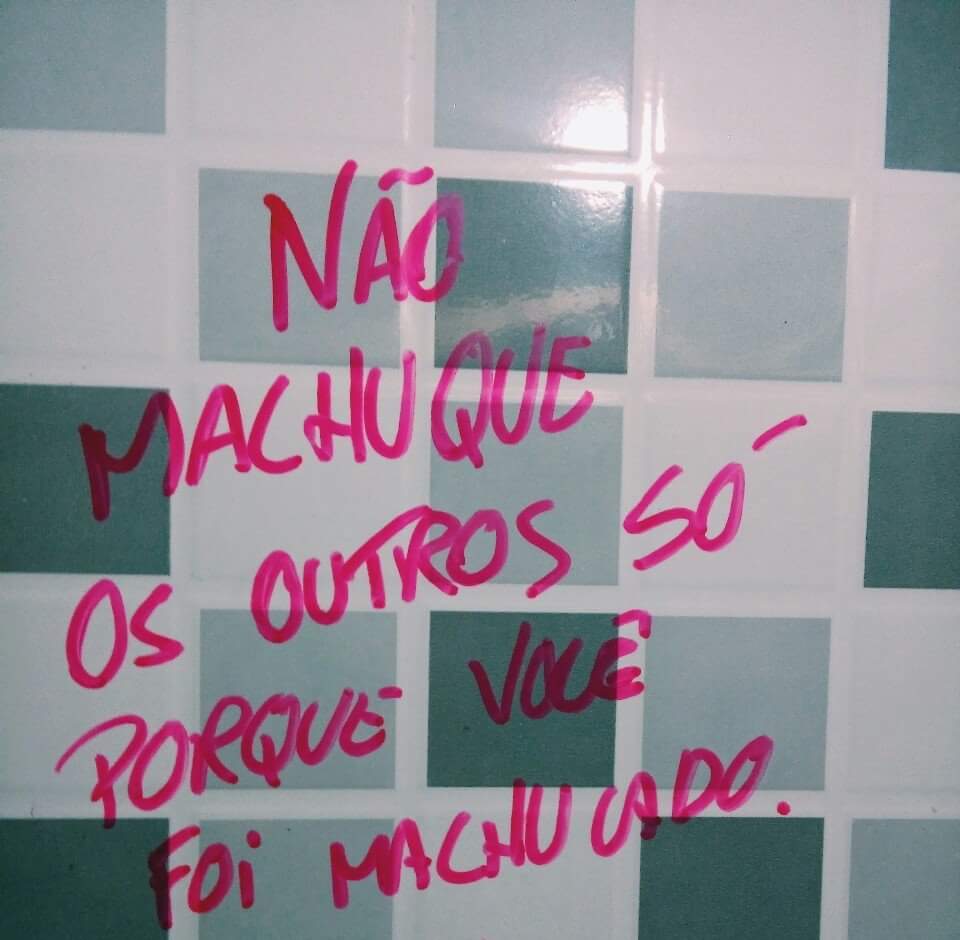 NÃO
MACHUQUE
OS OUTROS SÓ
PORQUE VOCÊ
FOI MACHUCADO.